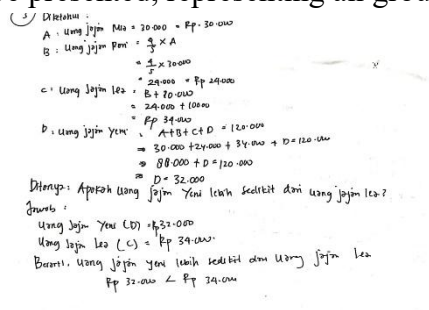 be presented, representing an grou
3 Diketahui :
A : Uang jajan Mia = 30.000 = Rp. 30.000
B : Uang jajan Poni = 4/5 × A
= 4/5 × 30.000
= 24.000 = Rp 24.000
C : Uang Jajan lea = B + 10.000
= 24.000 + 10000
= Rp 34.000
D : Uang jajan Yeni = A+B+C+D = 120.000
⇒ 30.000 + 24.000 + 34.000 + D = 120.000
⇒ 88.000 + D = 120.000
⇒ D = 32.000
Ditanya : Apakah uang jajan Yeni lebih sedikit dari uang jajan lea ?
Jawab :
Uang Jajan Yeni (D) = Rp32.000
Uang Jajan Lea (C) = Rp 34.000.
Berarti, uang jajan yeni lebih sedikit dari uang jajan lea
Rp 32.000 < Rp 34.000